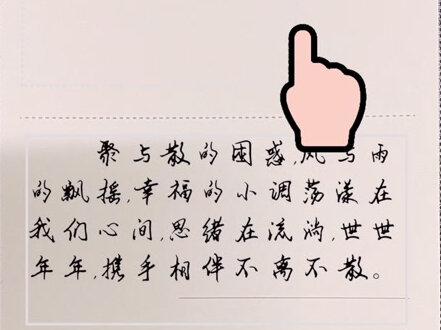 聚与散的困惑,风与雨
的飘摇,幸福的小调荡漾在
我们心间,思绪在流淌,世世
年年,携手相伴不离不散。